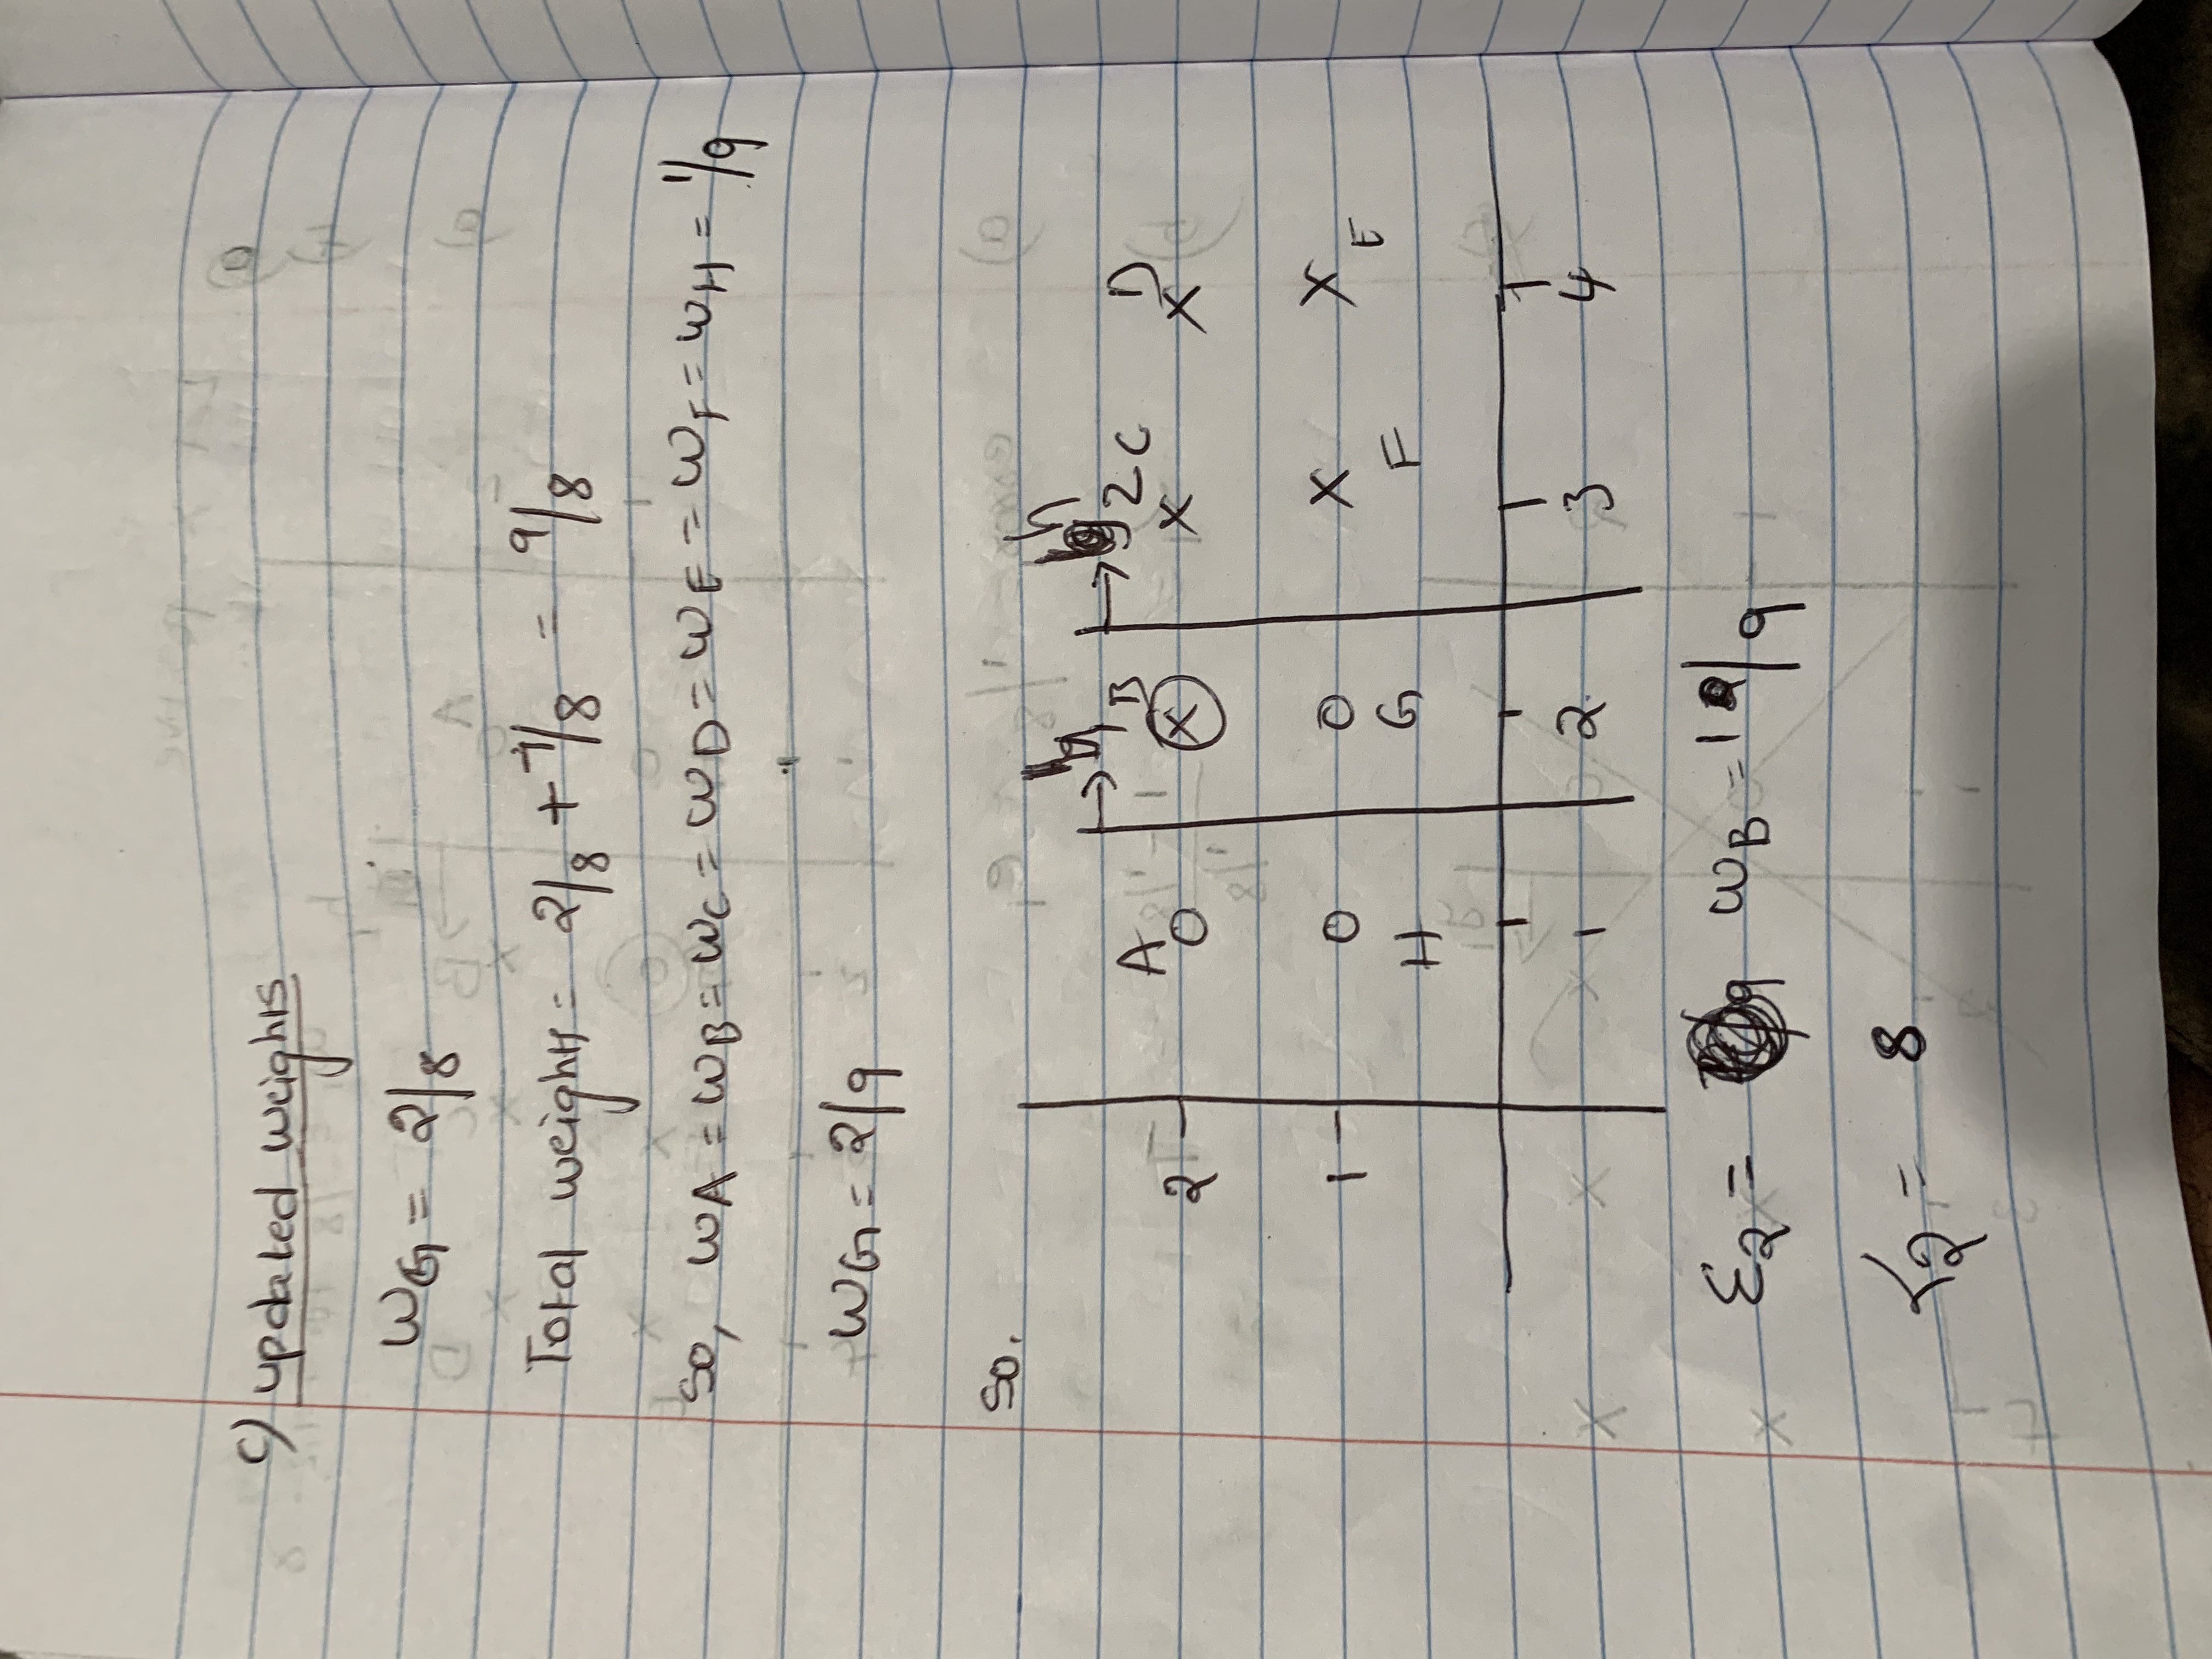 c) updated weights
WG = 2/8
Total weights = 2/8 + 7/8 = 9/8
so, wA = wB = wC = wD = wE = wF = wH = 1/9
WG = 2/9
so,
h1 h2
A B C D
2 o x x x
1 o o x x
H G F E
1 2 3 4
ε2 = wB = 1/9
α2 = 8